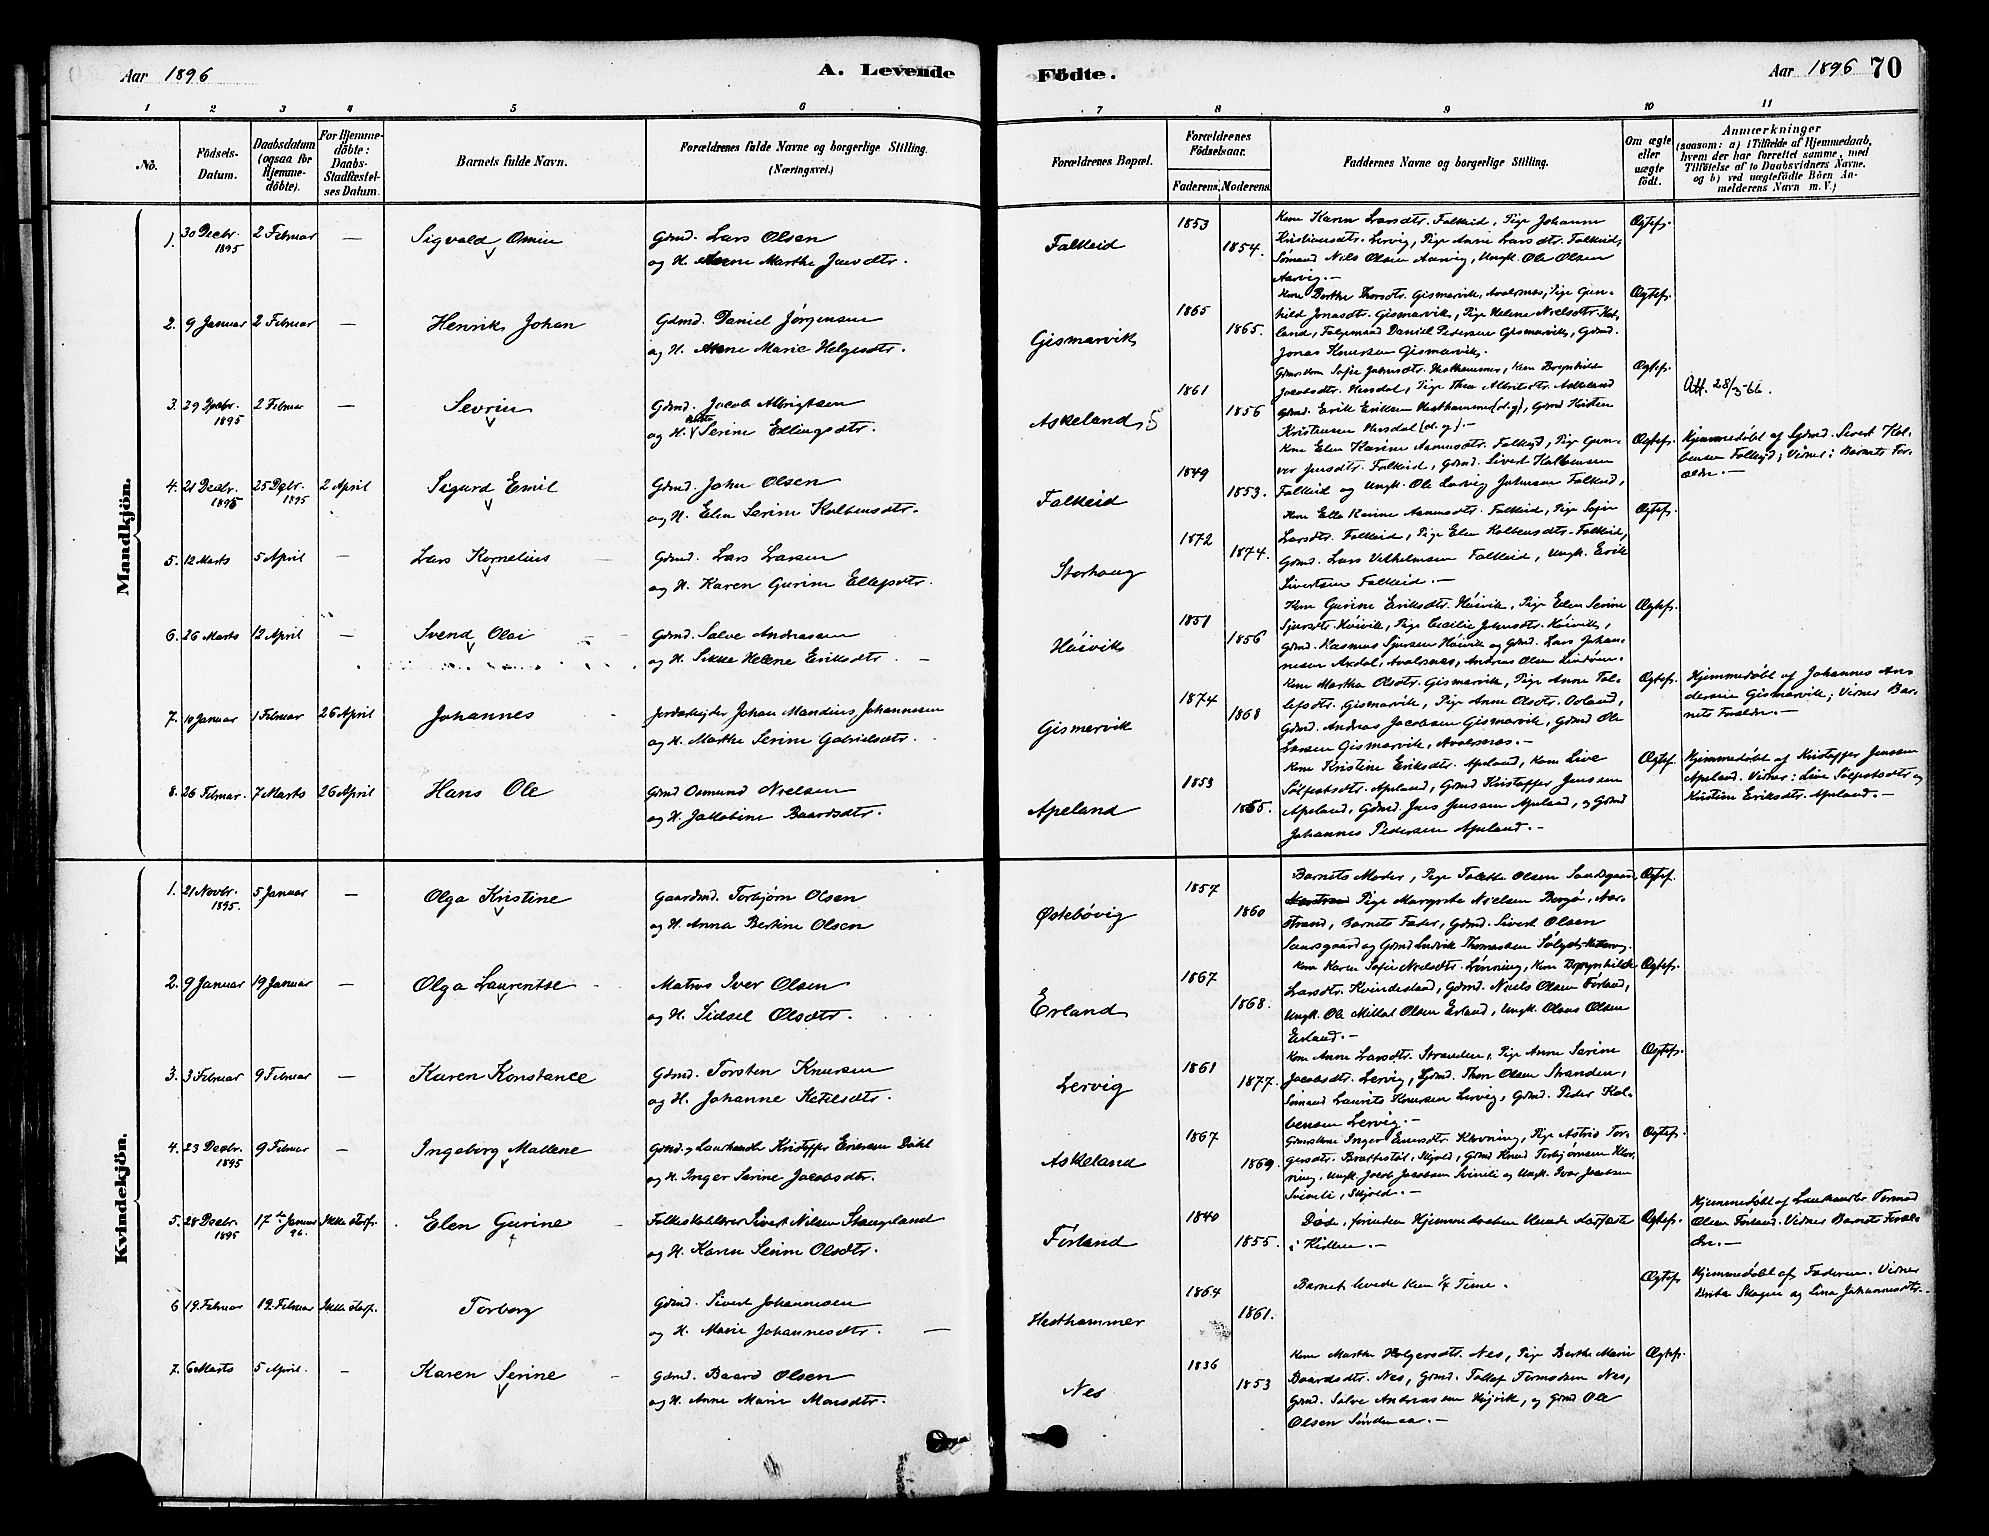 Aar 1896
A. Levende
Födte.
Aar 1896 70
1 2 3 4 5 6 7 8 9 10 11
No.
Födsels-Datum.
Daabsdatum (ogsaa for Hjemme-döbte).
For Hjemme-döbte: Daabs-Stadfæstel-ses Datum.
Barnets fulde Navn.
Forældrenes fulde Navne og borgerlige Stilling. (Næringsvei.)
Forældrenes Bopæl.
Forældrenes Födselsaar.
Faderens. Moderens.
Faddernes Navne og borgerlige Stilling.
Om ægte eller uægte födt.
Anmærkninger
(saasom: a) i Tilfælde af Hjemmedaab,
hvem der har forrettet samme, med
Tilföielse af to Daabsvidners Navne.
og b) ved uægtefödte Börn An-
melderens Navn m. V.)
Mandkjön.
1. 30 Decbr. 1895 2 Februar — Sigvald Omin
Gdmd. Lars Olsen
og H. Anne Marthe Jansdtr.
Falkeid 1853 1854.
Kone Karen Larsdtr. Falkeid, Pige Johanne
Kristiansdtr. Lervig, Pige Anne Larsdtr. Falkeid,
Sømand Nils Olsen Aarvig, Ungk. Ole Olsen
Aarvig.—
Ægtef.
2. 9 Januar 2 Februar — Henrik Johan
Gdmd. Daniel Jørgensen
og H. Anne Marie Helgesdtr.
Gismarvik 1865 1865.
Kone Berthe Thorsdtr. Gismarvik, Avalsnes, Pige Gun-
hild Jonasdtr. Gismarvik, Pige Helene Nielsdtr.
land, Daniel Pedersen Gismarvik, Gdmd.
Jonas Knursen Gismarvik.
Ægtef.
3. 29 Decbr. 1895 2 Februar — Sevrin
Gdmd. Jacob Albrigtsen
og H. Serine Ellingsdtr.
Askeland, 5 1861 1856
Sofie Hesthammer, Kone Brynhilde
Jacobsdtr. Hersdal, Pige Thea Albritsdtr. Askeland
Gdmd. Erik Eriksen Hesthammer (d.y), Gdmd
Kristensen Hersdal (d.y.).—
Ægtef.
Att. 28/3-66.
4. 21 Decbr. 1895 25 Dcbr. 1895 2 April Sigurd Emil
Gdmd. John Olsen
og H. Elen Serine Kolbensdtr.
Falkeid 1849 1853.
Kone Elen Karine Falkeid, Pige Gun-
vor Jensdtr. Falkeid, Gdmd. Sivert Kolbensen
Falkeid og Ungk. Ole Johnsen Falkeid.
Ægtef.
Hjemmedøbt af Gdmd. Sivert Kol-
bensen Falkeid; Vidner: Barnets For-
ældre.—
5. 12 Marts 5 April — Lars Kornelius
Gdmd. Lars Larsen
og H. Karen Gurine Ellefsdtr.
Storhaug 1872 1874.
Kone Karine Falkeid, Pige Sofie
Larsdtr. Falkeid, Pige Elen Kolbensdtr. Falkeid,
Gdmd. Lars Vilhelmsen Falkeid, Ungk. Erik
Sivertsen Falkeid.—
Ægtef.
6. 26 Marts 12 April — Svend Olai
Gdmd. Salve Andreasen
og H. Sikke Helene Eriksdtr.
Høivik 1851 1856
Kone Gurine Eriksdtr. Høivik, Pige Elen Serine
Høivik, Pige Cecilie Johnsdtr. Høivik,
Gdmd. Rasmus Høivik og Gdmd. Lars Johan-
nesen Axdal, Avalsnes, Andreas Olsen
Ægtef.
7. 10 Januar 1 Februar 26 April Johannes
Jordarbejder Johan Mandius Johannesen
og H. Marthe Serine Gabrielsdtr.
Gismervik 1874 1868
Kone Martha Olsdtr. Gismarvik, Pige Anne Tol-
lefsdtr. Gismarvik, Pige Anne Olsdtr.
Gdmd. Andreas Jacobsen Gismarvik, Gdmd Ole
Larsen Gismarvik, Avalsnes.—
Ægtef.
Hjemmedøbt af Johannes An-
dersen Gismarvik; Vidner Bar-
nets Forældre.—
8. 26 Februar. 7 Marts 26 April Hans Ole
Gdmd Osmund Nielsen
og H. Jakobine Baardsdtr.
Apeland 1853 1865.
Kone Kristine Eriksdtr. Apeland, Kone Live
Sølfestsdtr. Apeland, Gdmd Kristoffer Jensen
Apeland, Gdmd. Jens Jensen Apeland, og Gdmd
Johannes Pedersen Apeland.—
Ægtef.
Hjemmedøbt af Kristoffer Jensen
Apeland. Vidner: Live Sølfestsdtr og
Kristine Eriksdtr. Apeland.—
Kvindekjön.
1. 21 Novbr. 1895. 5 Januar — Olga Kristine
Gaardmd. Torbjørn Olsen
og H. Anna Bertine Olsen
Østebøvig 1857 1860
Barnets Moder, Pige Tolette Olsen
Pige Margrete Nielsen Borgø, Nar-
strand, Barnets Fader, Gdmd. Sivert Olsen
og Gdmd Ludvik Thomassen
Ægtef.
2. 9 Januar 19 Januar — Olga Laurentse
Matros Iver Olsen
og H. Sidsel Olsdtr.
Erland 1867 1868.
Kone Karen Sofie Nielsdtr. Lønning, Kone Brynhilde
Larsdtr. Kvindesland, Gdmd. Niels Olsen Førland,
Ungk. Ole Mikkal Olsen Erland, Ungk. Olaus Olsen
Erland.—
Ægtef.
3. 3 Februar 9 Februar — Karen Konstance
Gdmd. Torsten Knursen
og H. Johanne Ketilsdtr.
Lervig 1861 1877.
Kone Anne Larsdtr. Stranden, Pige Anne Serine
Jacobsdtr. Lervig, Gdmd. Thor Olsen Stranden,
Sømand Laurits Knursen Lervig, Gdmd. Peder Kol-
bensen Lervig.—
Ægtef.
4. 23 Decbr. 1895 9 Februar — Ingeborg Mallene
Gdmd. og Landhandler Kristoffer Eriksen Dahl
og H. Inger Serine Jacobsdtr.
Askeland 1867 1869.
Inger Klovning, Pige Astrid Tor-
gersdtr. Brattestøl, Skjold, Gdmd Knud Torbjørnsen Klov-
ning, Ungk. Jacob Jacobsen Svinali og Ungk. Ivar Jacobsen
Svinali, Skjold.—
Ægtef.
5. 28 Decbr. 1895 17de Januar 96. Ikke stadf. Elen Gurine
Folkeskolelærer Sivert Nilsen Stangeland
og H. Karen Serine Olsdtr.
Førland 1840 1855.
Døde, forinden Hjemmedaaben kunde stadfæstes
i Kirken.—
Ægtef.
Hjemmedøbt af Landhandler. Tormod
Olsen Førland. Vidner Barnets Foræl-
dre.—
6 19 Februar 19. Februar Ikke stadf. Torborg
Gdmd. Sivert Johannesen
og H. Marie Johannesdtr.
Hesthammer 1864 1861.
Barnet levede kun ½ Time.
Ægtef.
Hjemmedøbt af Faderen. Vidner
Brita Skogen og Lina Johannesdtr.
7. 6 Marts 5 April. — Karen Serine
Gdmd. Baard Olsen
og H. Anne Marie Monsdtr.
Nes 1836 1853
Kone Marthe Holgersdtr. Nes, Pige Berthe Marie
Baardsdtr. Nes, Gdmd. Tollef Tormodsen Nes,
Gdmd. Salve Andreassen Høivik, og Gdmd Ole
Olsen Søndenaa.—
Ægtef.